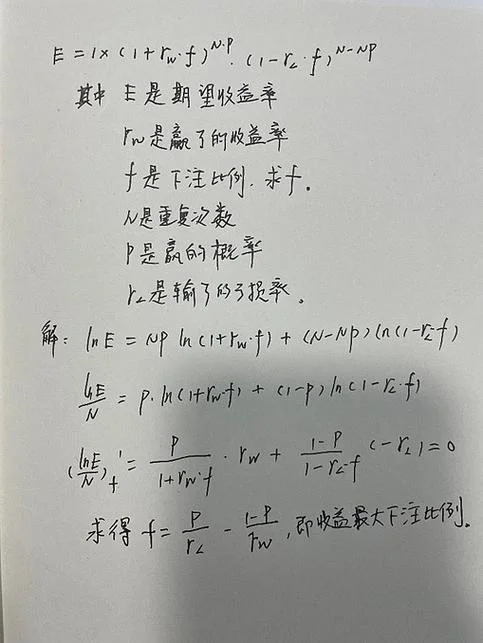 E = 1×(1+r_w·f)^{N·P}·(1-r_L·f)^{N-NP}
其中 E是期望收益率
r_w是赢了的收益率
f是下注比例.求f。
N是重复次数
P是赢的概率
r_L是输了的亏损率。
解: lnE = NP ln(1+r_w·f) + (N-NP) ln(1-r_L·f)
lnE/N = P·ln(1+r_w·f) + (1-P) ln(1-r_L·f)
(lnE/N)'_f = P/(1+r_w·f) · r_w + (1-P)/(1-r_L·f) (-r_L) = 0
求得 f = P/r_L - (1-P)/r_w, 即收益最大下注比例。